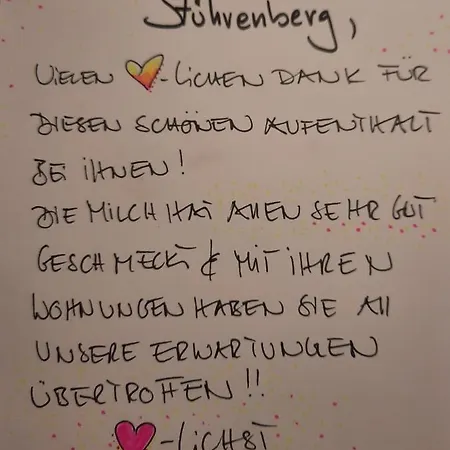 Stührenberg,
VIELEN ❤-LICHEN DANK FÜR
DIESEN SCHÖNEN AUFENTHALT
BEI IHNEN!
DIE MILCH HAT ALLEN SEHR GUT
GESCHMECKT & MIT IHREN
WOHNUNGEN HABEN SIE ALL
UNSERE ERWARTUNGEN
ÜBERTROFFEN!!
❤-LICHST